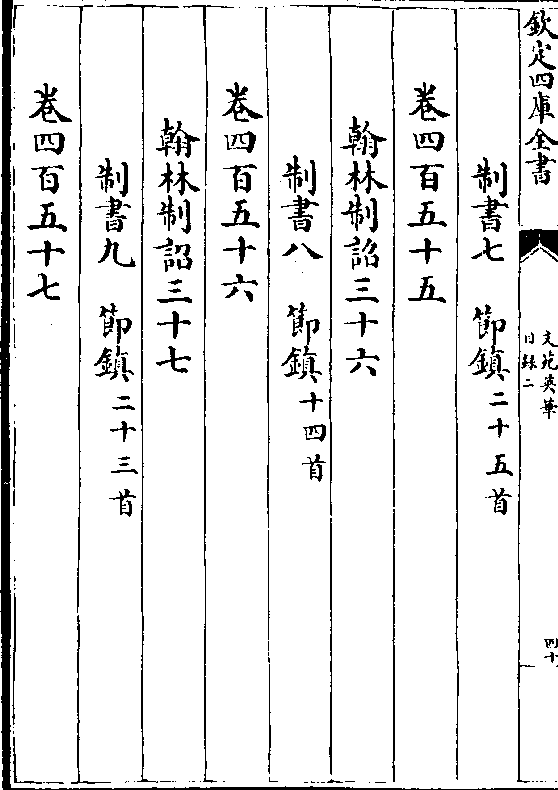 欽定四庫全書
文苑英華
目錄二
四十
制書七　節鎮二十五首
卷四百五十五
翰林制詔三十六
制書八　節鎮十四首
卷四百五十六
翰林制詔三十七
制書九　節鎮二十三首
卷四百五十七